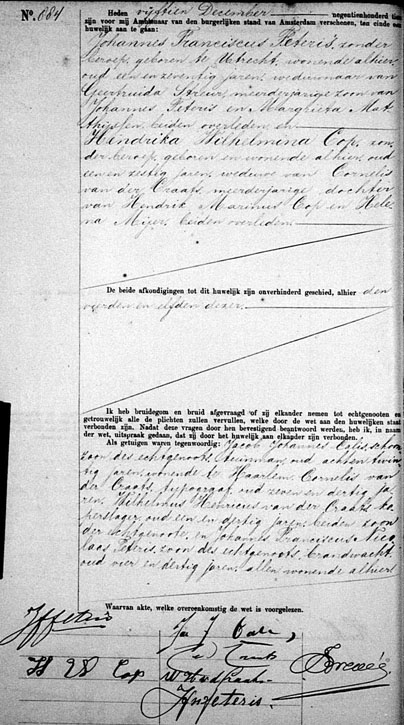 No. 884
Heden vijftien December negentienhonderd tien
zijn voor mij Ambtenaar van den burgerlijken stand van Amsterdam verschenen, ten einde een
huwelijk aan te gaan:
Johannes Franciscus Peteris, zonder
beroep, geboren te Utrecht, wonende alhier,
oud een en zeventig jaren, weduwnaar van
Geertruida Streur, meerderjarige zoon van
Johannes Peteris en Margrieta Mat
thijssen, beiden overleden, en
Hendrika Wilhelmina Cop, zon
der beroep, geboren en wonende alhier, oud
een en zestig jaren, weduwe van Cornelis
van der Craats, meerderjarige dochter
van Hendrik Marinus Cop en Hele
na Mijer, beiden overleden.
De beide afkondigingen tot dit huwelijk zijn onverhinderd geschied, alhier den
vierden en elfden dezer.
Ik heb bruidegom en bruid afgevraagd of zij elkander nemen tot echtgenooten en
getrouwelijk alle de plichten zullen vervullen, welke door de wet aan den huwelijken staat
verbonden zijn. Nadat deze vragen door hen bevestigend beantwoord werden, heb ik, in naam
der wet, uitspraak gedaan, dat zij door het huwelijk aan elkander zijn verbonden.
Als getuigen waren tegenwoordig: Jacob Johannes schoon
zoon des echtgenoots, tuinman, oud acht en twin
tig jaren, wonende te Haarlem, Cornelis van
der Craats, typograaf, oud zeven en dertig ja
ren, Wilhelmus Henricus van der Craats, ko
perslager, oud een en dertig jaren, beiden zoon
der echtgenoote, en Johannis Franciscus Nico
laas Peteris, zoon des echtgenoots, brandwacht,
oud vier en dertig jaren, allen wonende alhier.
Waarvan akte, welke overeenkomstig de wet is voorgelezen.
JF Peteris
H W Cop